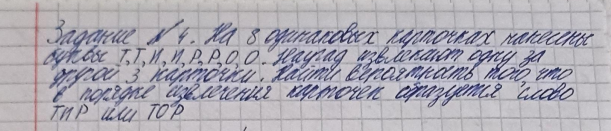 Задание № 4. На 8 одинаковых карточках нанесены
буквы Т, Т, И, И, Р, Р, О, О. Наугад извлекают одну за
другой 3 карточки. Найти вероятность того, что
в порядке извлечения карточек образуется слово
ТИР или ТОР